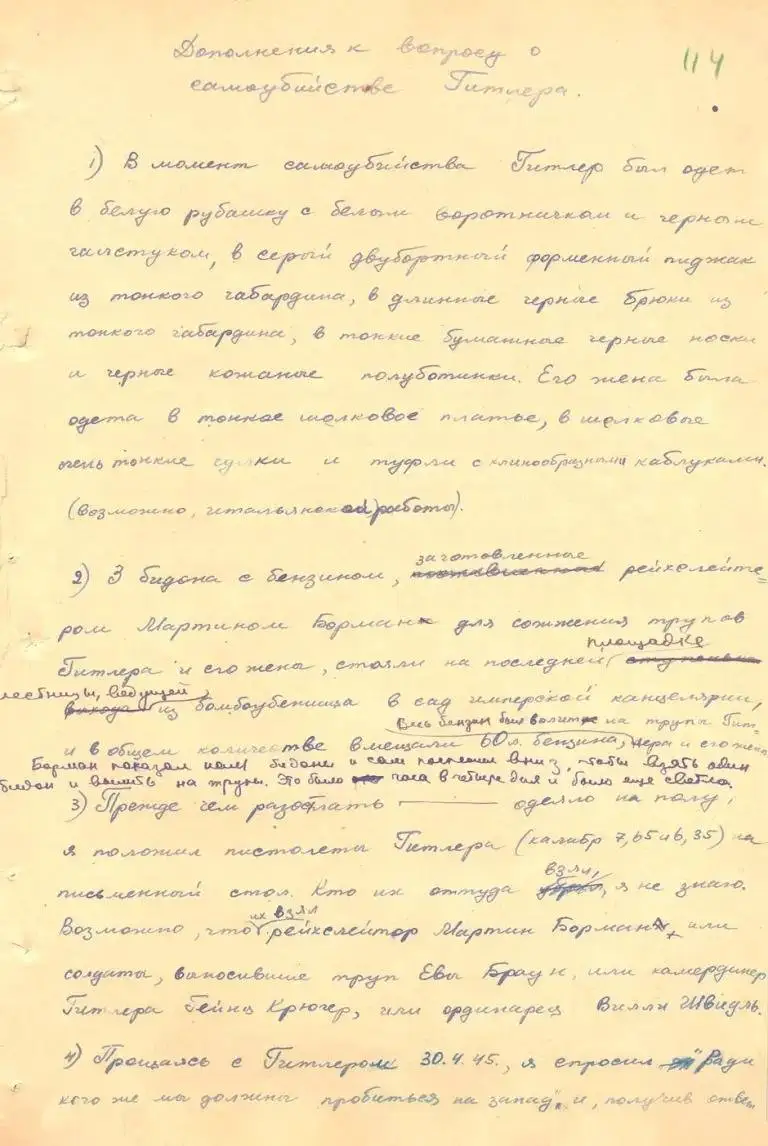 Дополнения к вопросу о
самоубийстве Гитлера.
114
1) В момент самоубийства Гитлер был одет
в белую рубашку с белым воротничком и черным
галстуком, в серый двубортный форменный пиджак
из тонкого габардина, в длинные черные брюки из
тонкого габардина, в тонкие бумажные черные носки
и черные кожаные полуботинки. Его жена была
одета в тонкое шолковое платье, в шолковые
очень тонкие чулки и туфли с клинообразными каблуками.
(возможно, итальянской работы).
заготовленные
2) 3 бидона с бензином, рейхслейте-
ром Мартином Борман для сожжения трупов
площадке
Гитлера и его жены, стояли на последней
лестницы, ведущей
из бомбоубежища в сад имперской канцелярии,
весь бензин был вылит на трупы Гит-
и в общем количестве вмещали 60 л. бензина, лера и его жены
Борман показал нам бидоны и сам поспешил вниз, чтобы взять один
бидон и вылить на трупы. Это было часа в четыре дня и было еще светло.
3) Прежде чем разостлать одеяло на полу,
я положил пистолеты Гитлера (калибр 7,65 и 6,35) на
взял,
письменный стол. Кто их оттуда я не знаю.
их взял
Возможно, что рейхслейтор Мартин Борман, или
солдаты, выносившие труп Евы Браун, или камердинер
Гитлера Гейнц Крюгер, или ординарец Вилли Швидль.
4) Прощаясь с Гитлером 30.4.45., я спросил "Ради
кого же мы должны пробиться на запад", и, получив ответ